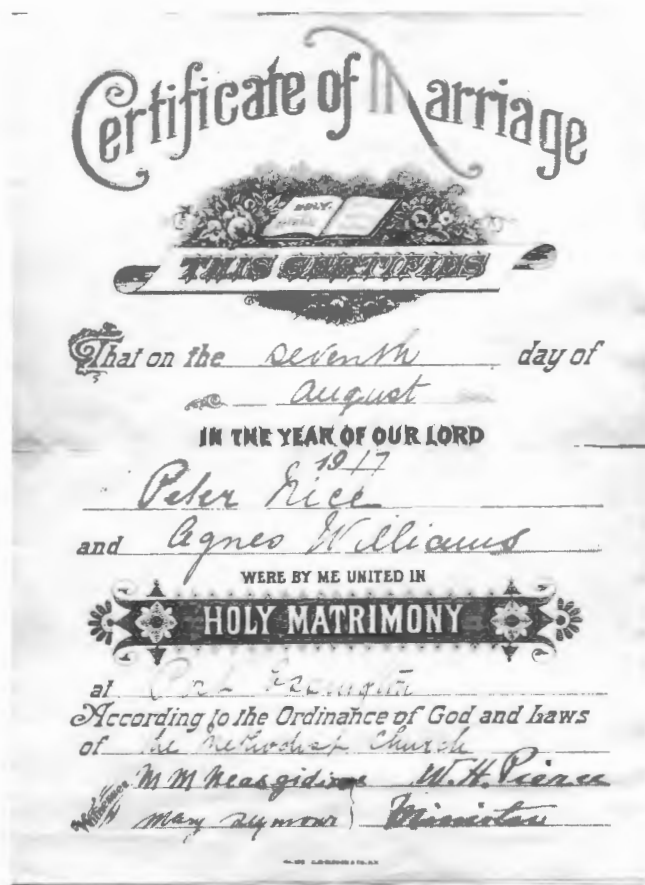 Certificate of Marriage
HOLY
THIS CERTIFIES
That on the seventh day of
august
IN THE YEAR OF OUR LORD
1917
Peter Nice
and Agnes Williams
WERE BY ME UNITED IN
HOLY MATRIMONY
at Port
According to the Ordinance of God and Laws
of the Methodist Church
Witnesses M M W. H. Pierce
Mary Seymour Minister